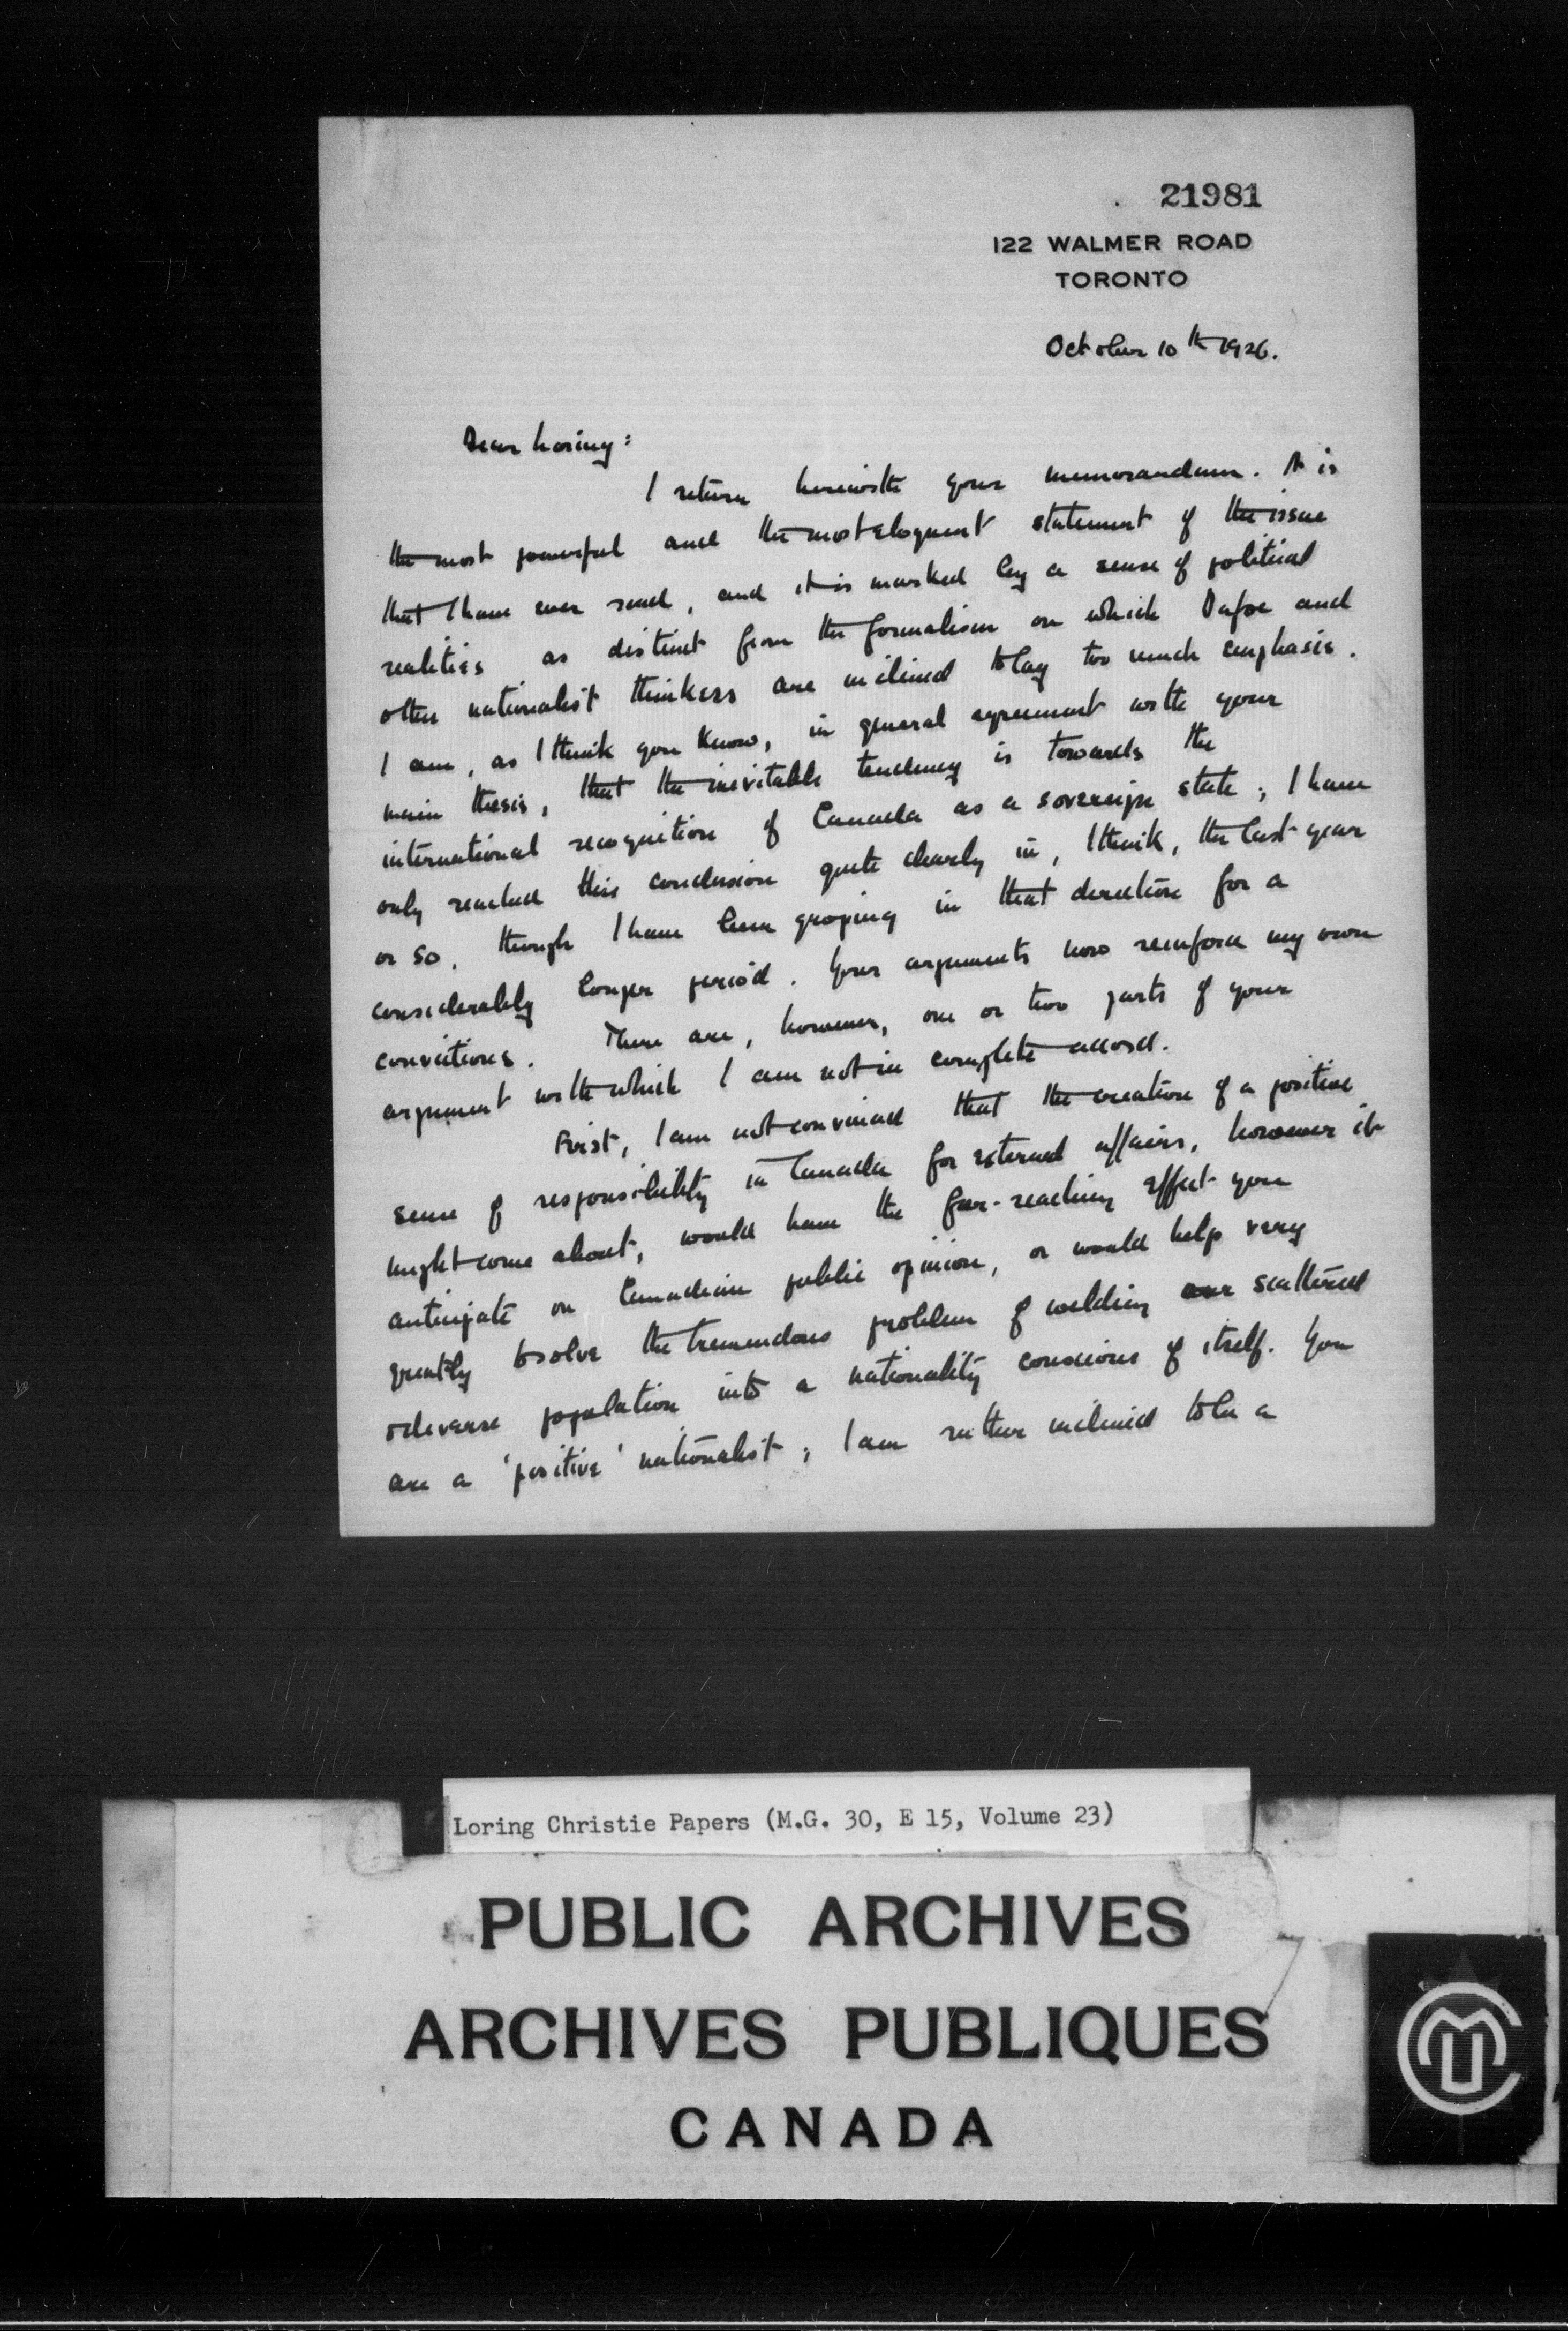 21981
122 WALMER ROAD
TORONTO
October 10th 1926.
Dear Loring:
I return herewith your memorandum. It is
the most powerful and the most eloquent statement of the issue
that I have ever read, and it is marked by a sense of political
realities as distinct from the formalism on which Dafoe and
other nationalist thinkers are inclined to lay too much emphasis.
I am, as I think you know, in general agreement with your
main thesis, that the inevitable tendency is towards the
international recognition of Canada as a sovereign state; I have
only reached this conclusion quite clearly in, I think, the last year
or so, though I have been groping in that direction for a
considerably longer period. Your arguments now reinforce my own
convictions. There are, however, one or two parts of your
argument with which I am not in complete accord.
First, I am not convinced that the creation of a positive
sense of responsibility in Canada for external affairs, however it
might come about, would have the far-reaching effect you
anticipate on Canadian public opinion, or would help very
greatly to solve the tremendous problem of welding our scattered
& diverse population into a nationality conscious of itself. You
are a 'positive' nationalist; I am rather inclined to be a
Loring Christie Papers (M.G. 30, E 15, Volume 23)
PUBLIC ARCHIVES
ARCHIVES PUBLIQUES
CANADA